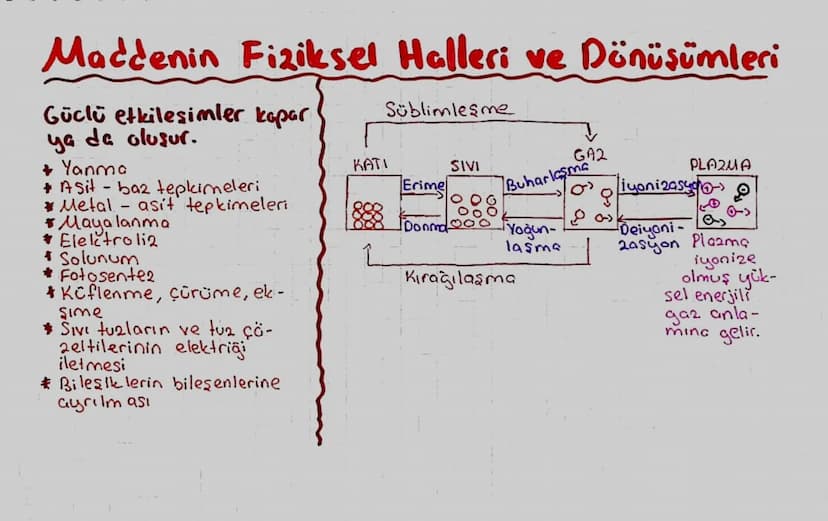 Maddenin Fiziksel Halleri ve Dönüşümleri
Güçlü etkileşimler kopar
ya da oluşur.
* Yanma
* Asit - baz tepkimeleri
* Metal - asit tepkimeleri
* Mayalanma
* Elektroliz
* Solunum
* Fotosentez
* Küflenme, çürüme, ek-
şime
* Sıvı tuzların ve tuz çö-
zeltilerinin elektriği
iletmesi
* Bileşiklerin bileşenlerine
ayrılması
Süblimleşme
KATI
SIVI
GAZ
PLAZMA
Erime
Buharlaşma
İyonizasyon
Donma
Yoğun-
laşma
Deiyoni-
zasyon
Kırağılaşma
Plazma
iyonize
olmuş yük-
sel enerjili
gaz anla-
mına gelir.